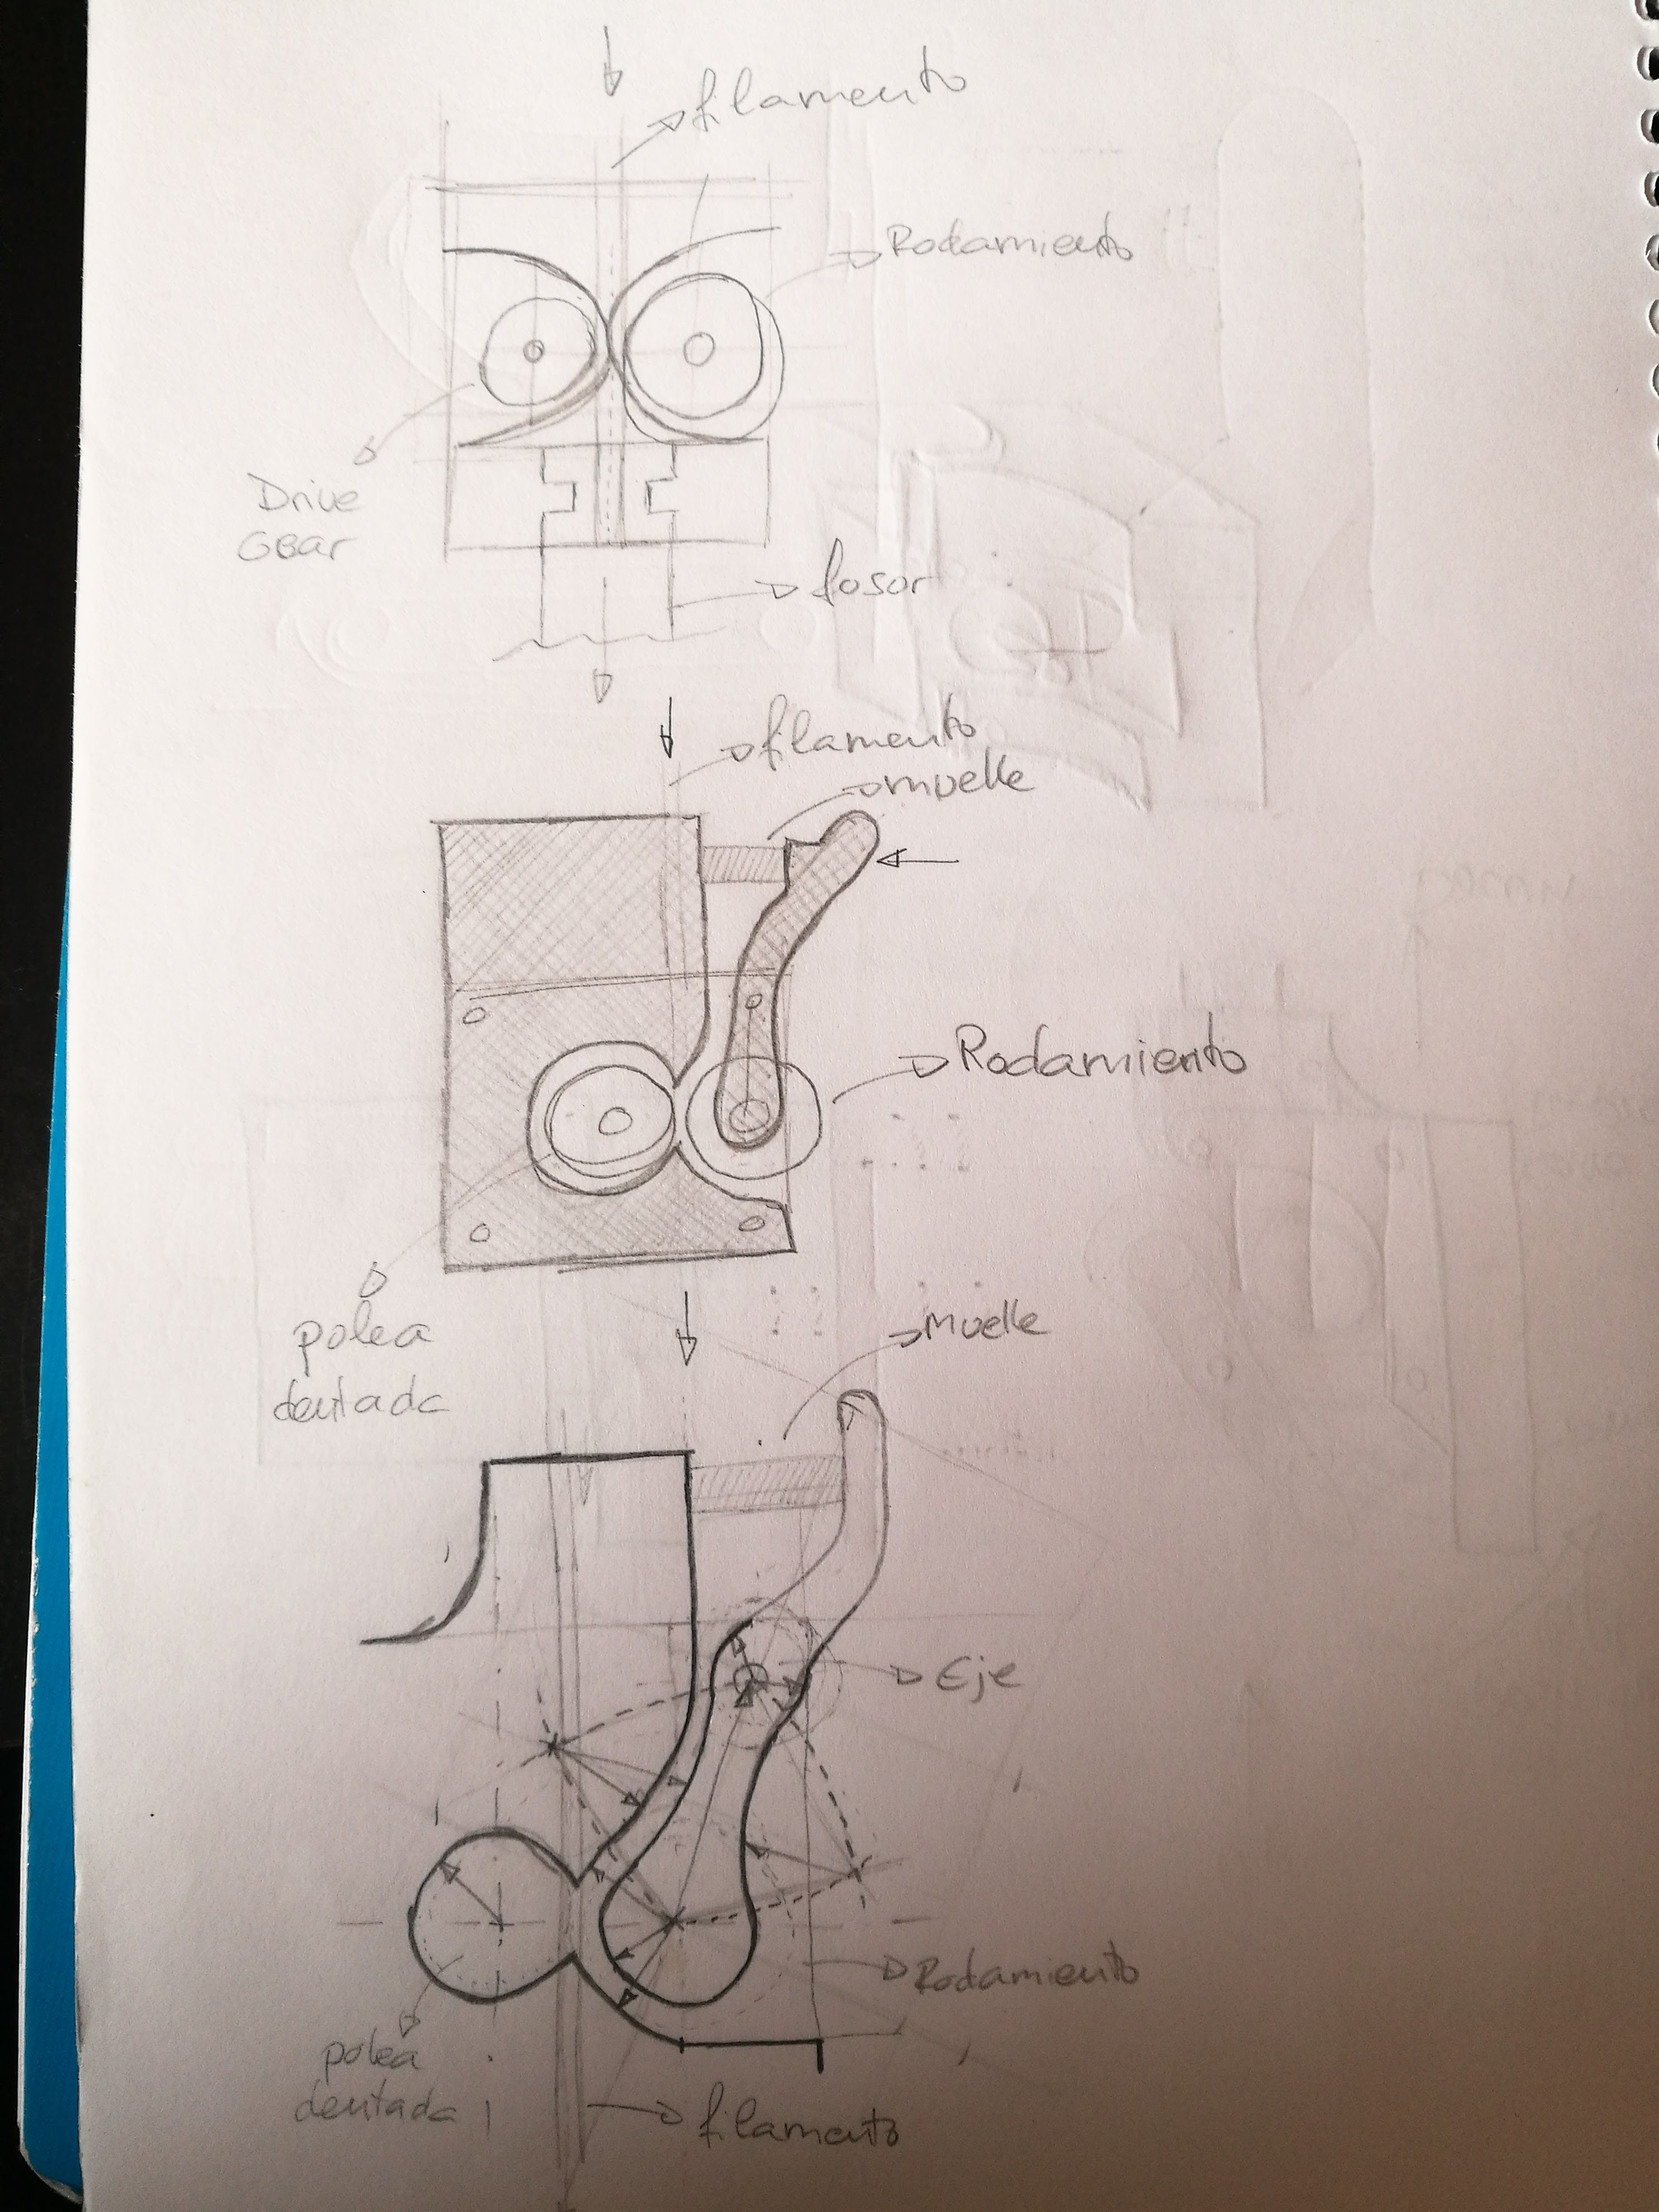 filamento
Rodamiento
Drive
Gear
fusor
filamento
muelle
Rodamiento
polea
dentada
Muelle
Eje
Rodamiento
polea
dentada
filamento